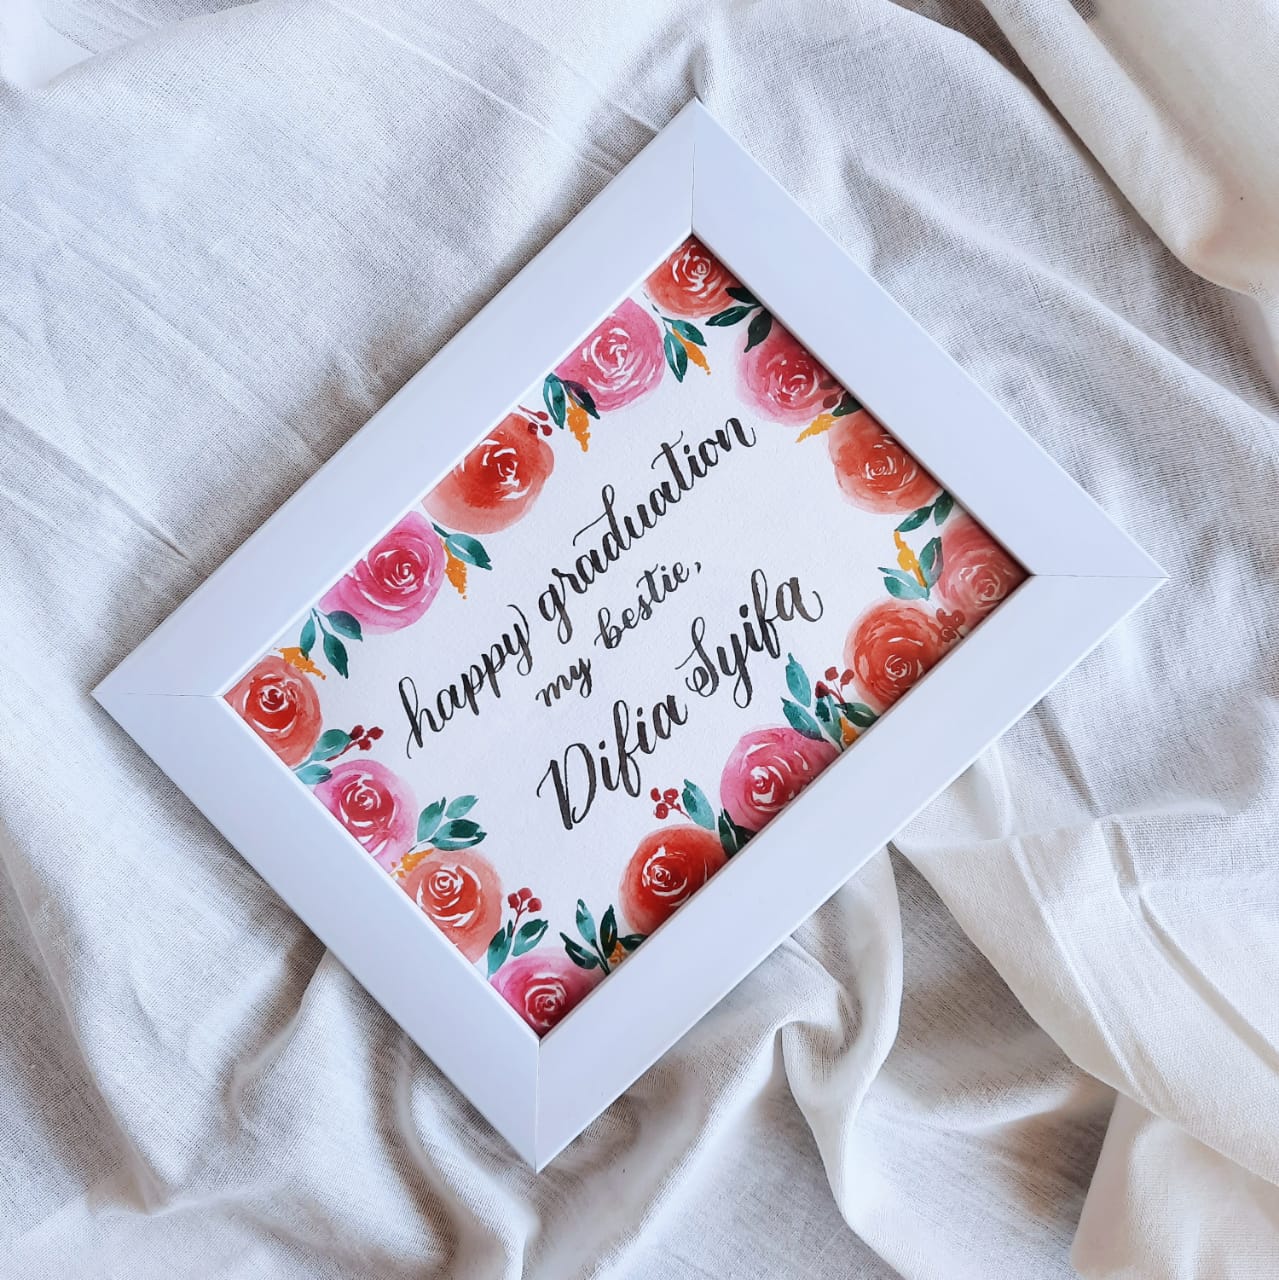 happy graduation
my bestie,
Difia Syifa